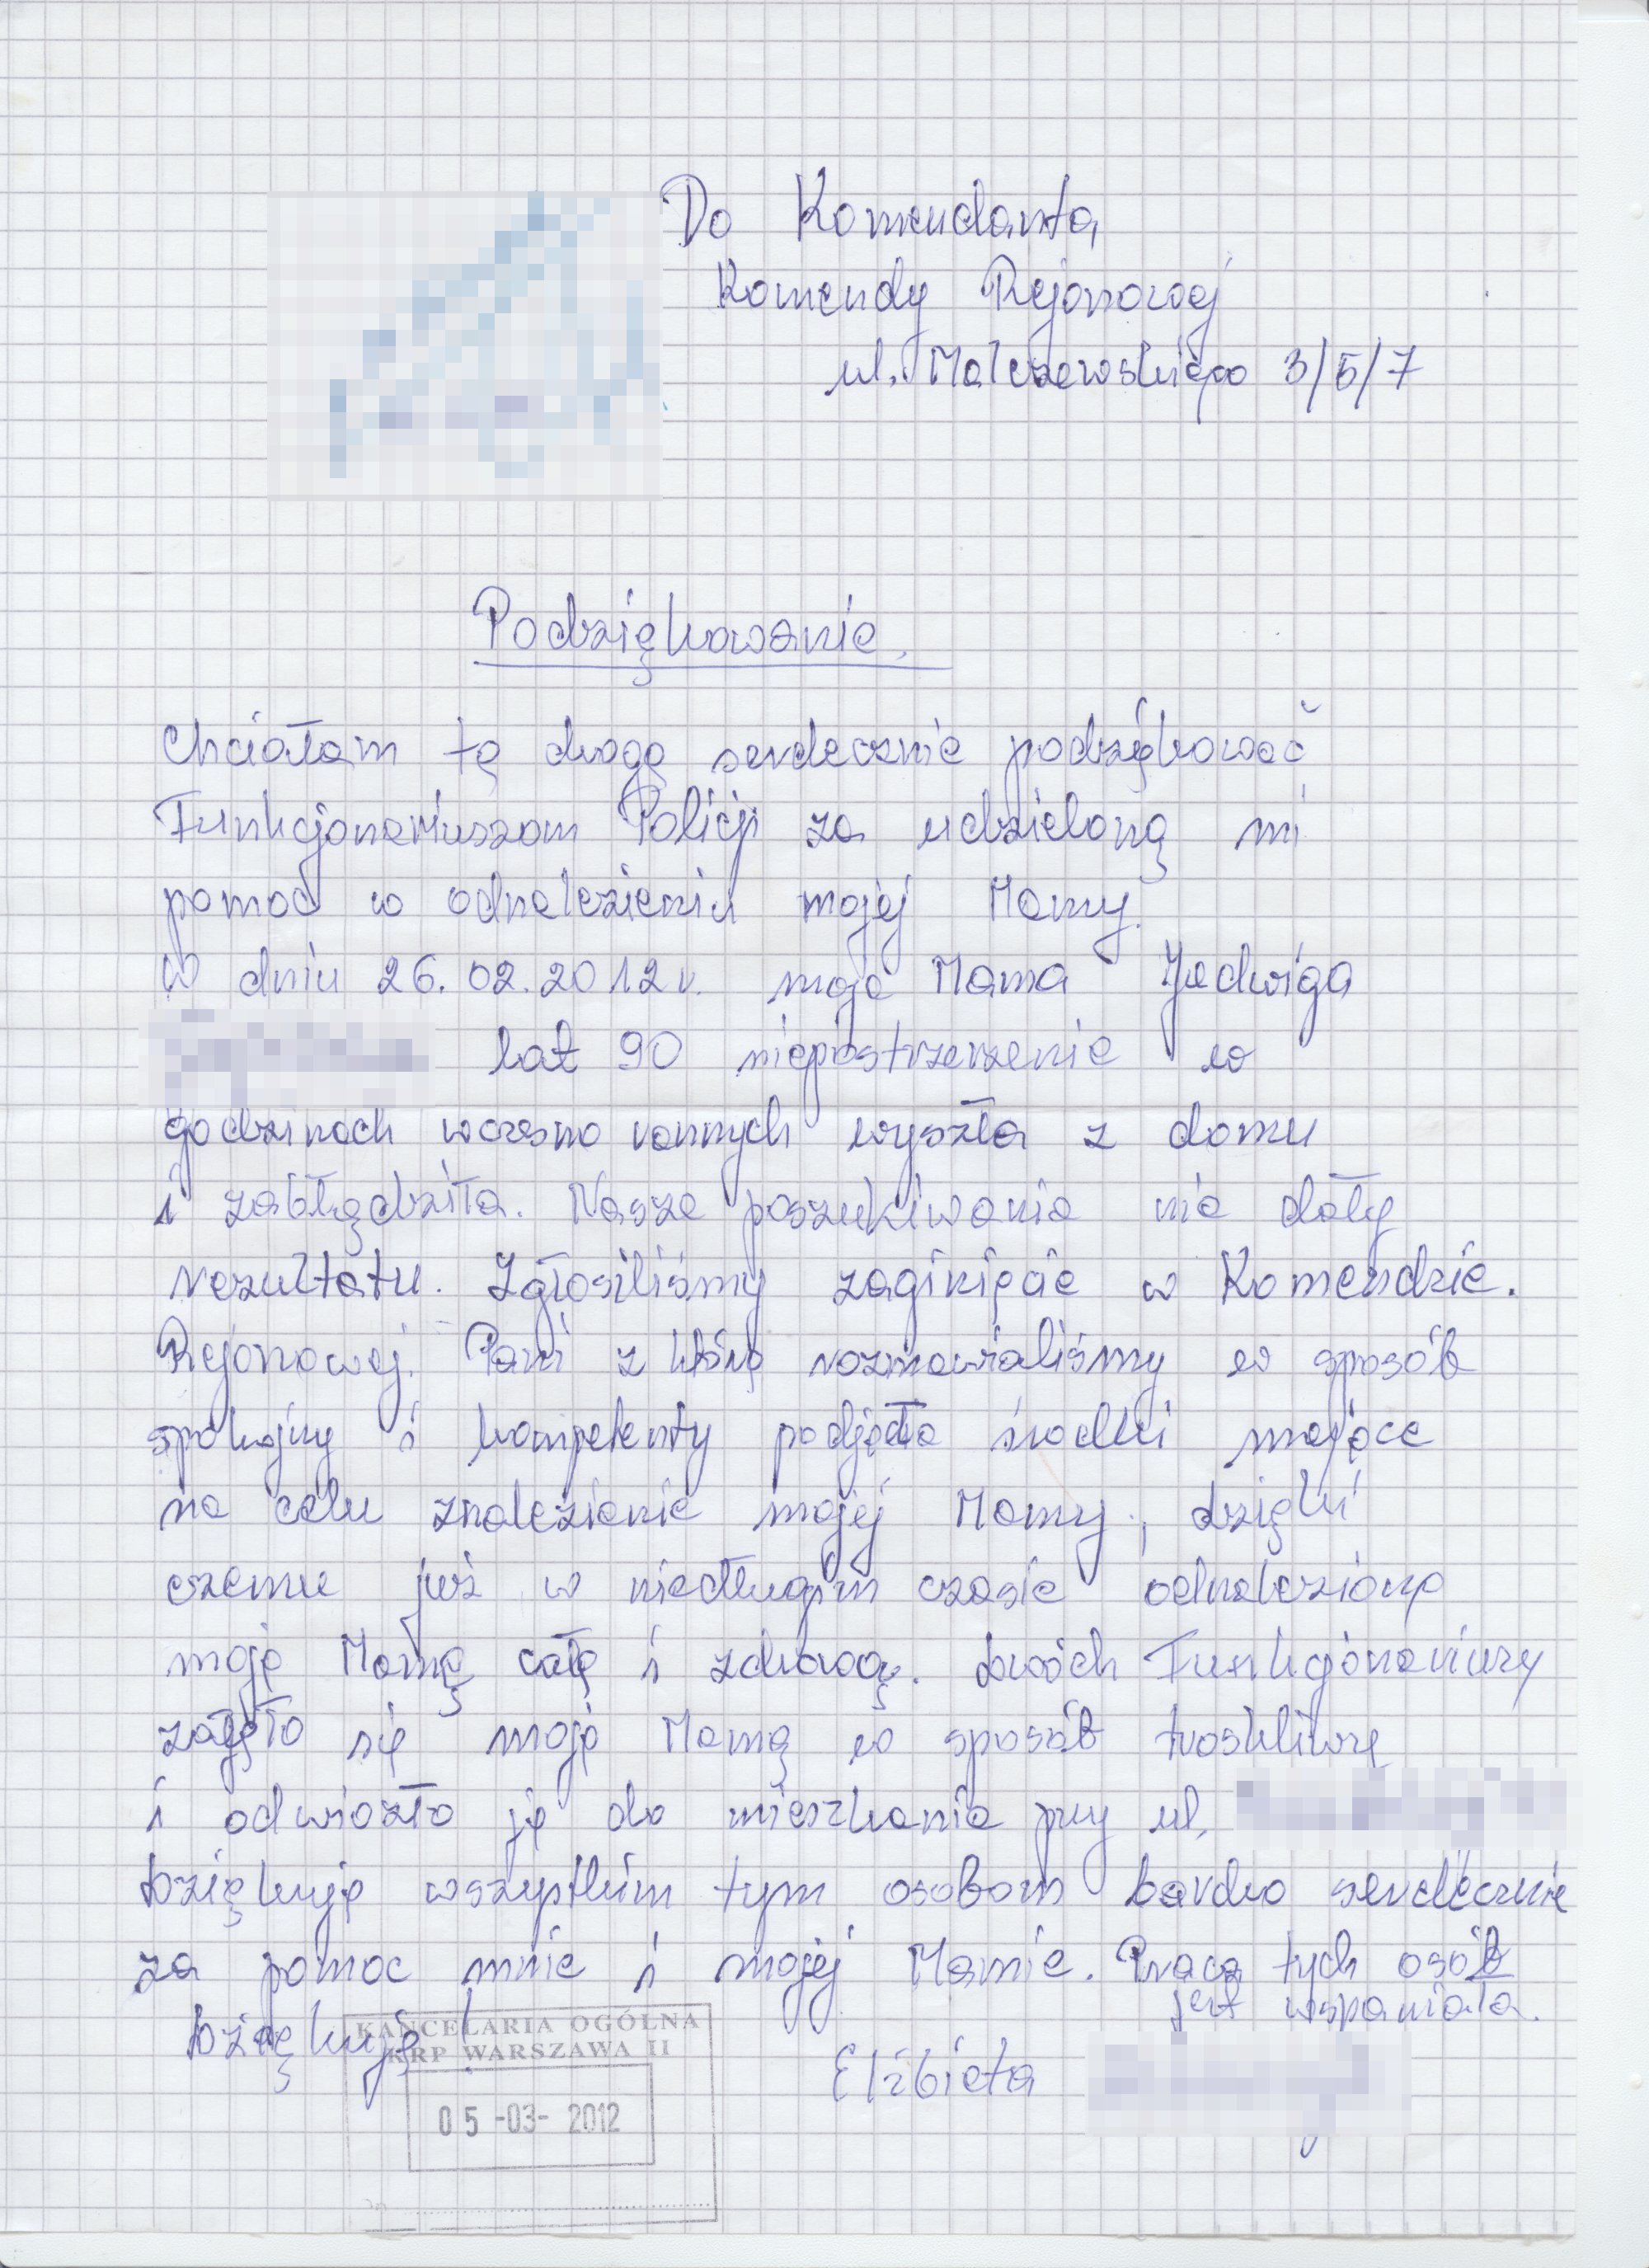 Do Komendanta
Komendy Rejonowej
ul. Malczewskiego 3/5/7
Podziękowanie.
Chciałam tą drogą serdecznie podziękować
Funkcjonariuszom Policji za udzieloną mi
pomoc w odnalezieniu mojej Mamy.
W dniu 26.02.2012 r. moja Mama Jadwiga
lat 90 niepostrzeżenie w
godzinach wczesno rannych wyszła z domu
i zabłądziła. Nasze poszukiwania nie dały
rezultatu. Zgłosiliśmy zaginięcie w Komendzie.
Rejonowej. Pani z którą rozmawialiśmy w sposób
spokojny i kompetenty podjęła środki mające
na celu znalezienie mojej Mamy, dzięki
czemu już w niedługim czasie odnaleziono
moją Mamę całą i zdrową. Dwóch Funkcjonariuszy
zajęło się moją Mamą w sposób troskliwy
i odwiozło ją do mieszkania przy ul.
Dziękuję wszystkim tym osobom bardzo serdecznie
za pomoc mnie i mojej Mamie. Praca tych osób
jest wspaniała.
Dziękuję!
Elżbieta
KANCELARIA OGÓLNA
KRP WARSZAWA II
05 -03- 2012